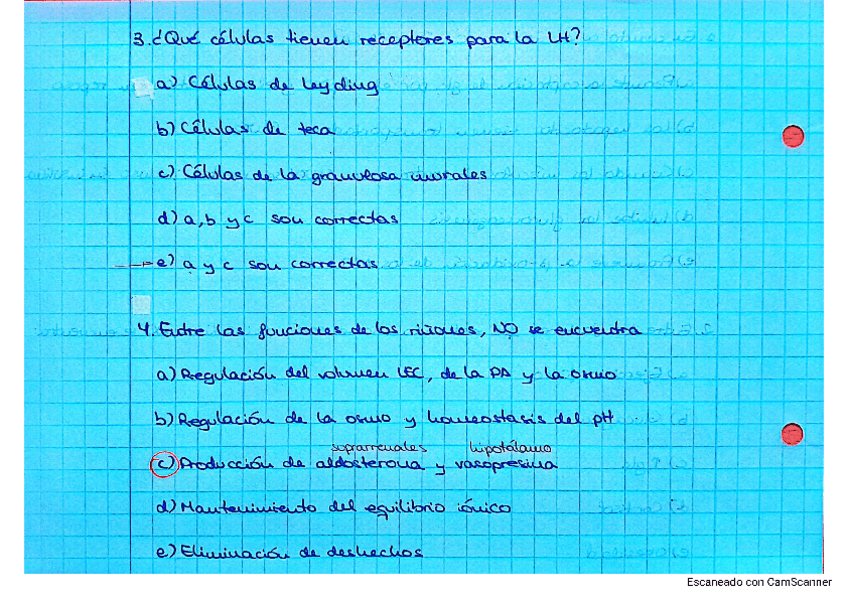 3. ¿Qué células tienen receptores para la LH?
a) Células de leyding
b) Células de teca
c) Células de la granulosa murales
d) a, b y c son correctas
e) a y c son correctas
4. Entre las funciones de los riñones, NO se encuentra
a) Regulación del volumen LEC, de la PA y la osmo
b) Regulación de la osmo y homeostasis del pH
suprarrenales hipotálamo
c) Producción de aldosterona y vasopresina
d) Mantenimiento del equilibrio iónico
e) Eliminación de deshechos
Escaneado con CamScanner